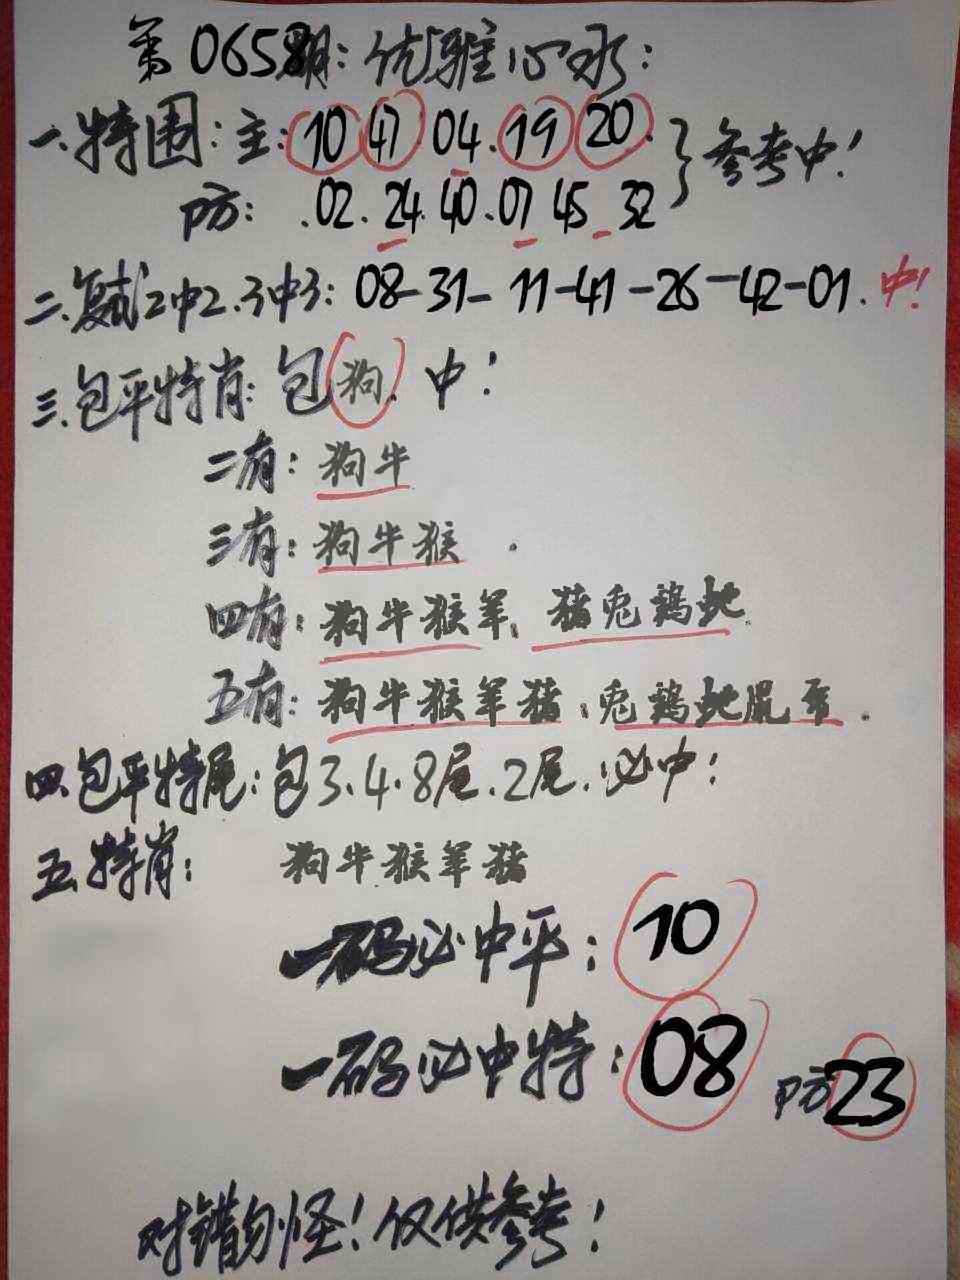 第0658期：优雅心水：
一.特围：主：10 47 04.19 20.}参考中！
防：.02.24.40.07 45 32
二.复试2中2.3中3：08-31-11-41-26-42-01.中！
三.包平特肖：包狗.中！
二有：狗牛
三有：狗牛猴.
四有：狗牛猴羊、猪兔鸡蛇
五有：狗牛猴羊猪；兔鸡蛇鼠
四.包平特尾：包3.4.8尾.2尾.必中！
五.特肖：狗牛猴羊猪
一码必中平：10
一码必中特：08 防23
对错勿怪！仅供参考！